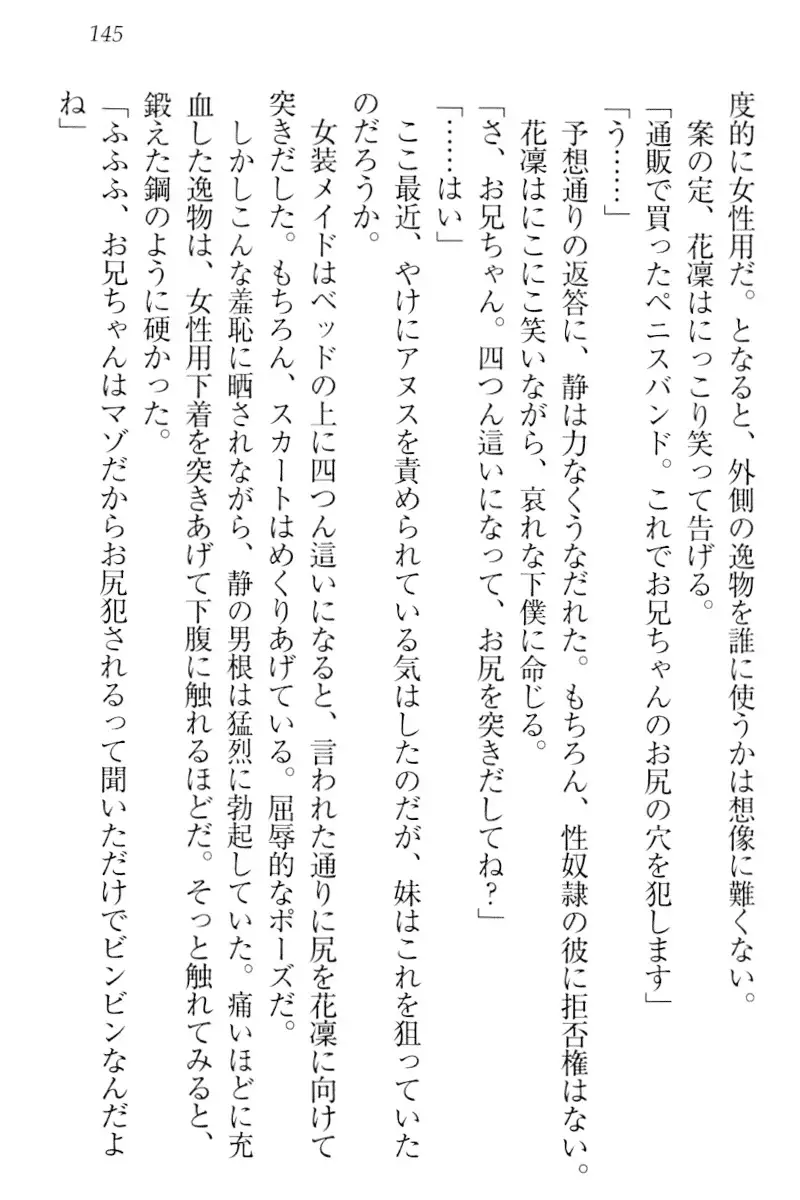 145
度的に女性用だ。となると、外側の逸物を誰に使うかは想像に難くない。
案の定、花凜はにっこり笑って告げる。
「通販で買ったペニスバンド。これでお兄ちゃんのお尻の穴を犯します」
「う……」
予想通りの返答に、静は力なくうなだれた。もちろん、性奴隷の彼に拒否権はない。
花凜はにこにこ笑いながら、哀れな下僕に命じる。
「さ、お兄ちゃん。四つん這いになって、お尻を突きだしてね?」
「……はい」
ここ最近、やけにアヌスを責められている気はしたのだが、妹はこれを狙っていた
のだろうか。
女装メイドはベッドの上に四つん這いになると、言われた通りに尻を花凜に向けて
突きだした。もちろん、スカートはめくりあげている。屈辱的なポーズだ。
しかしこんな羞恥に晒されながら、静の男根は猛烈に勃起していた。痛いほどに充
血した逸物は、女性用下着を突きあげて下腹に触れるほどだ。そっと触れてみると、
鍛えた鋼のように硬かった。
「ふふふ、お兄ちゃんはマゾだからお尻犯されるって聞いただけでビンビンなんだよ
ね」